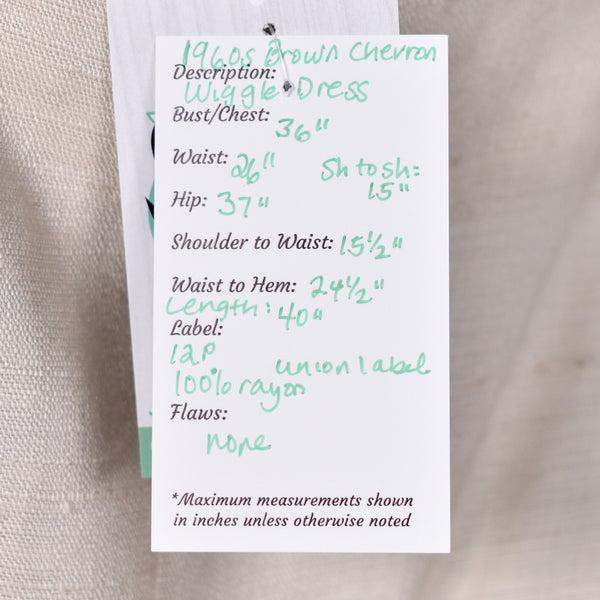 1960s Brown Chevron
Description:
Wiggle Dress
Bust/Chest: 36"
Waist: 26" Sh to sh: 15"
Hip: 37"
Shoulder to Waist: 15½"
Waist to Hem: 24½"
Length: 40"
Label:
12P union label
100% rayon
Flaws:
none
*Maximum measurements shown
in inches unless otherwise noted